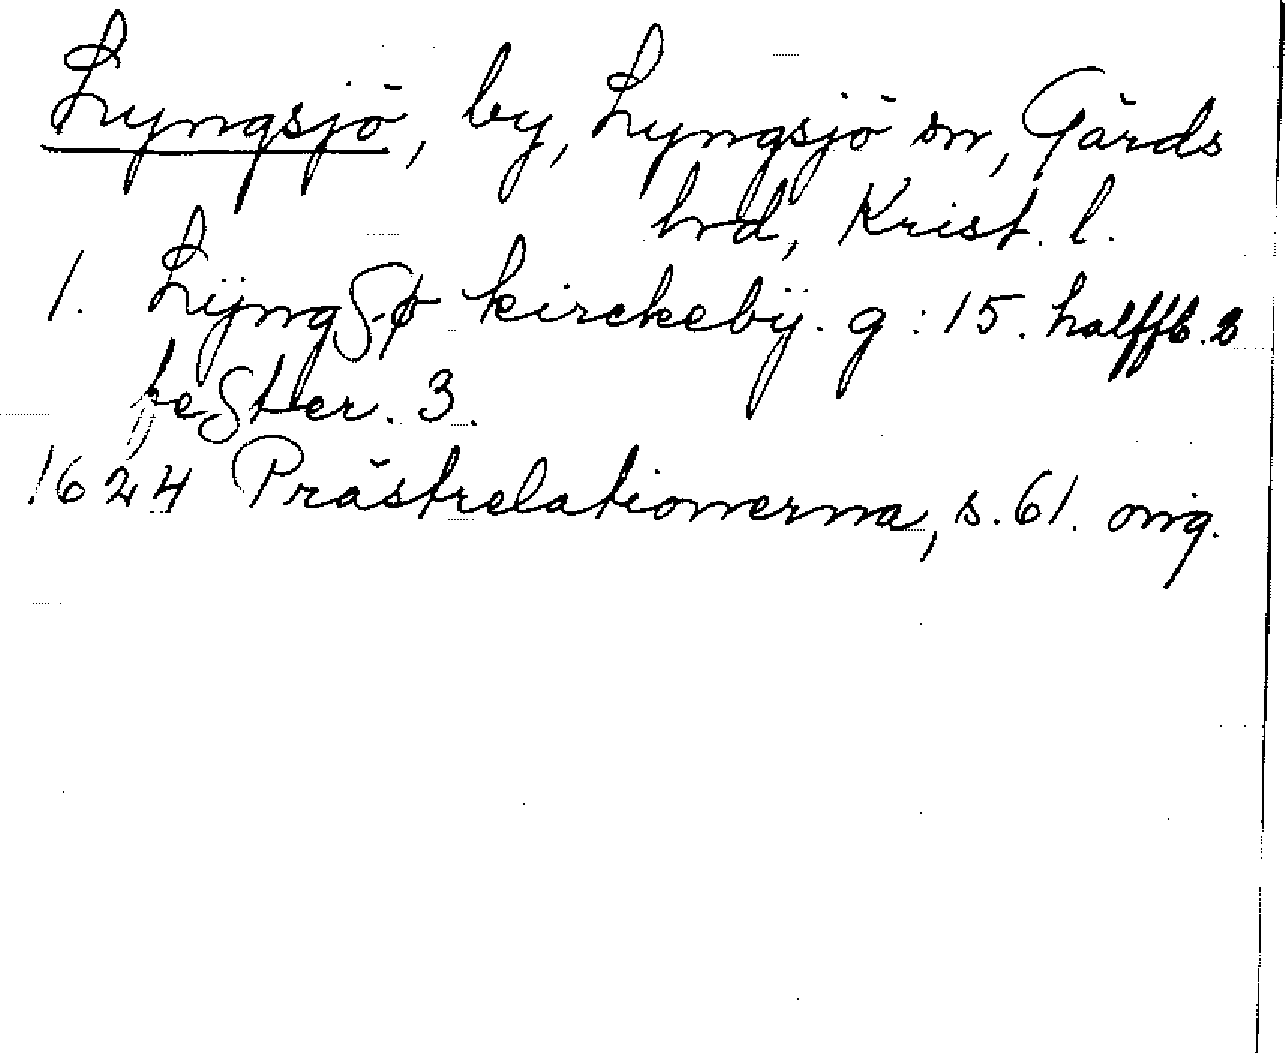 Lyngsjö, by, Lyngsjö sn, Gärds
hrd, Krist. l.
1. LÿngSø kirckebÿ. g: 15. halffb. 2
feSter. 3.
1624 Prästrelationerna, s. 61. orig.